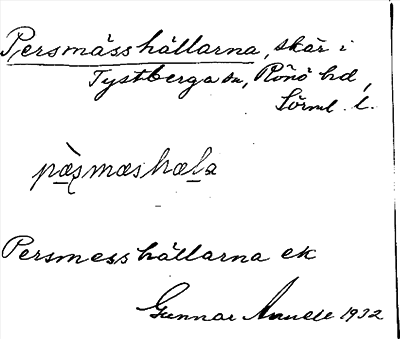 Persmässhällarna, skär i
Tystberga sn, Rönö hd,
Sörml. l.
pæ̀smæshæla
Persmesshällarna ek
Gunnar Amell 1932